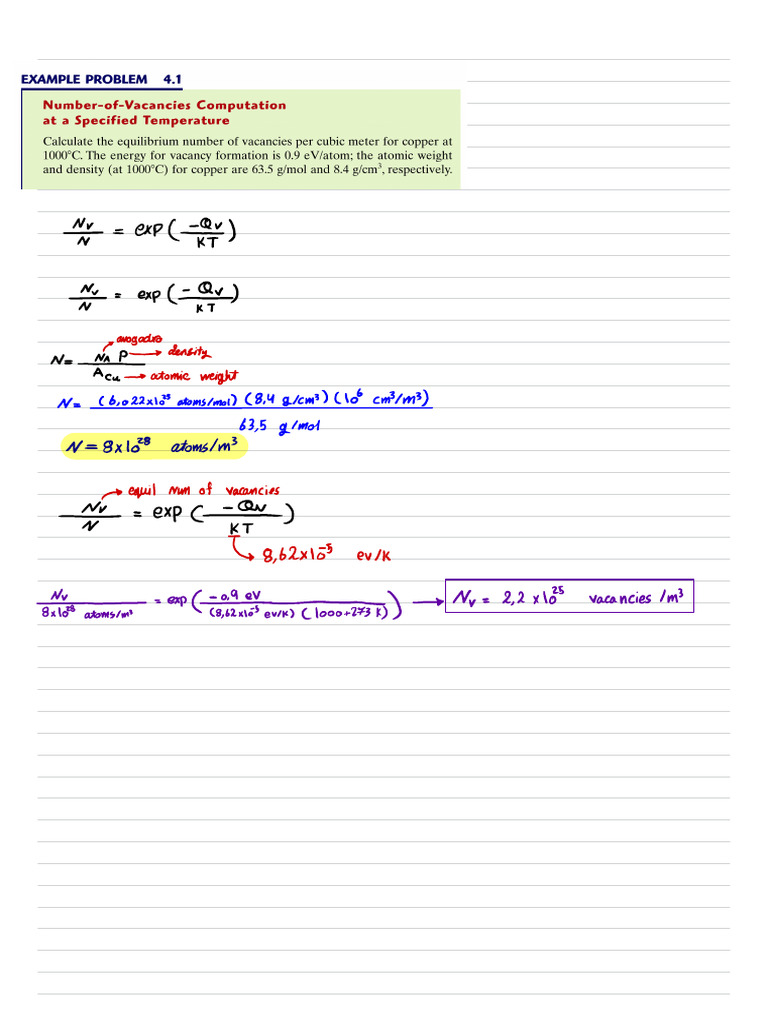 EXAMPLE PROBLEM 4.1
Number-of-Vacancies Computation
at a Specified Temperature
Calculate the equilibrium number of vacancies per cubic meter for copper at
1000°C. The energy for vacancy formation is 0.9 eV/atom; the atomic weight
and density (at 1000°C) for copper are 63.5 g/mol and 8.4 g/cm³, respectively.
Nv/N = exp(-Qv/KT)
Nv/N = exp(-Qv/KT)
avogadro
N = NA ρ/ACu
density
atomic weight
N = (6,022x10²³ atoms/mol) (8,4 g/cm³) (10⁶ cm³/m³)
63,5 g/mol
N = 8x10²⁸ atoms/m³
equil num of vacancies
Nv/N = exp(-Qv/KT)
8,62x10⁻⁵ ev/K
Nv/8x10²⁸ atoms/m³ = exp(-0,9 eV/(8,62x10⁻⁵ eV/K) (1000+273 K)) → Nv = 2,2 x10²⁵ vacancies /m³